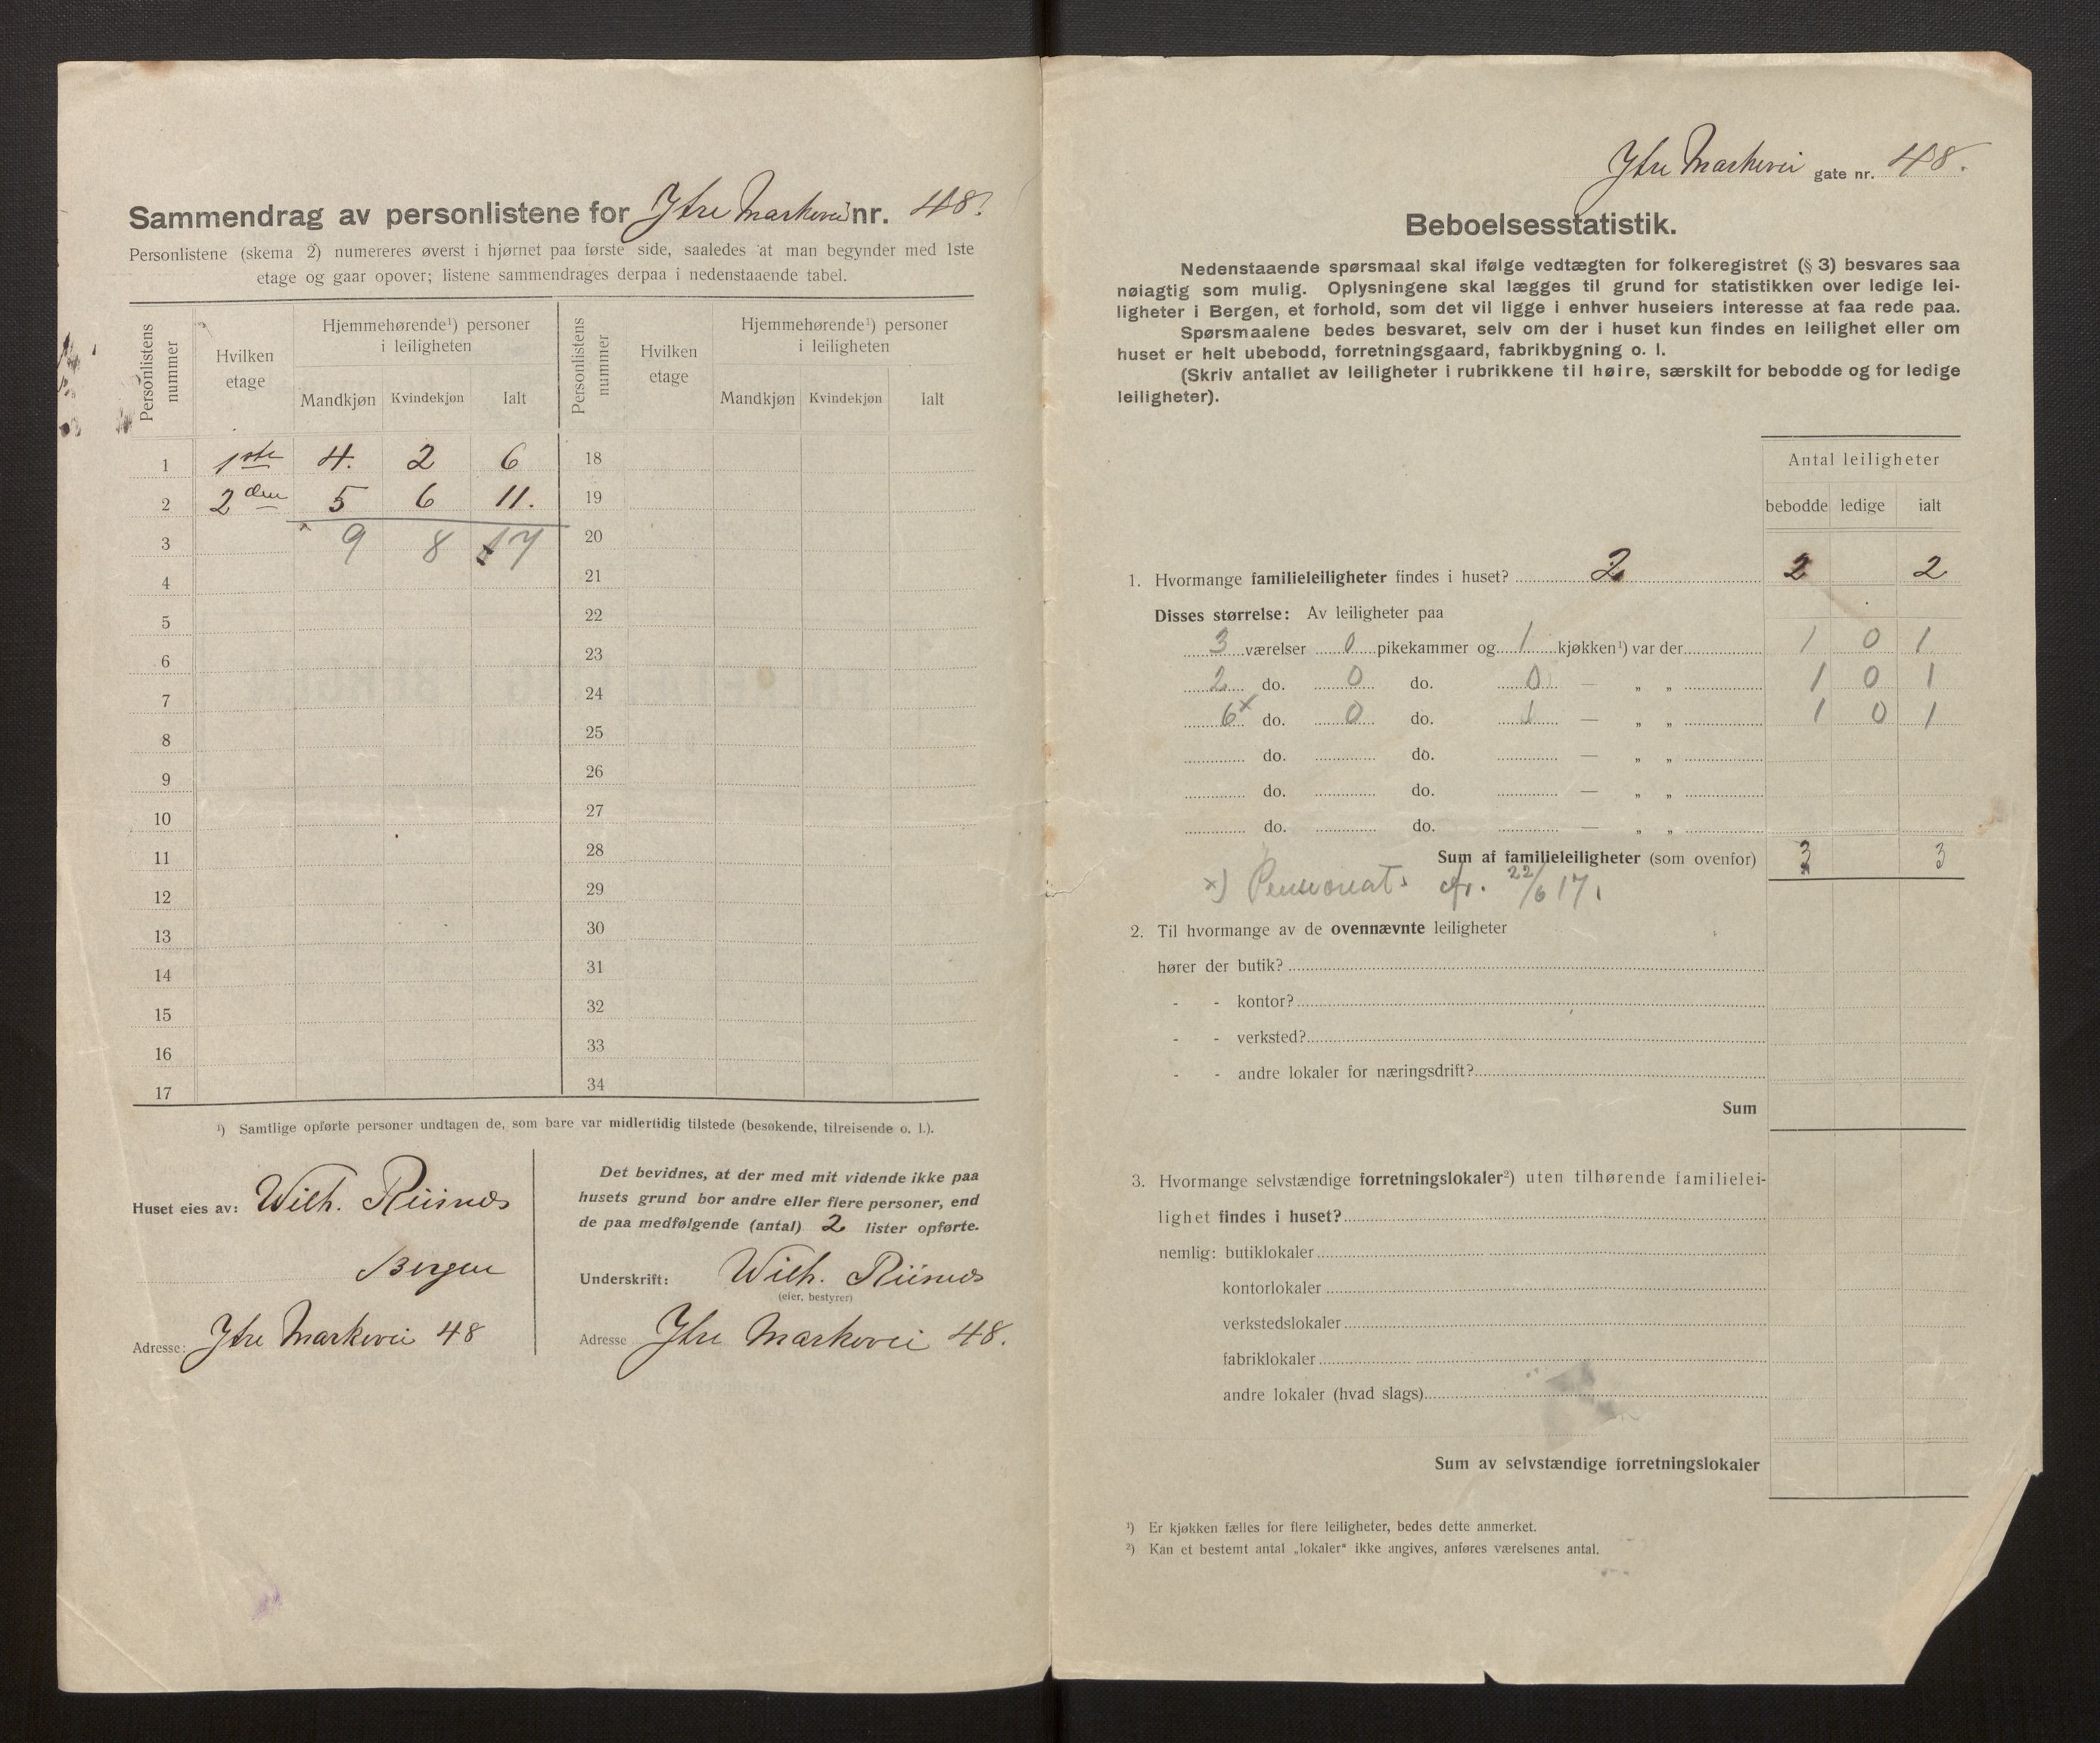 Sammendrag av personlistene for Ytre Markevei nr. 48.
Personlistene (skema 2) numereres øverst i hjørnet paa første side, saaledes at man begynder med 1ste
etage og gaar opover; listene sammendrages derpaa i nedenstaaende tabel.
Personlistens nummer
Hvilken etage
Hjemmehørende¹) personer i leiligheten
Mandkjøn Kvindekjøn Ialt
Personlistens nummer
Hvilken etage
Hjemmehørende¹) personer i leiligheten
Mandkjøn Kvindekjøn Ialt
1 1ste 4. 2 6 18
2 2den 5 6 11. 19
3 9 8 17 20
4 21
5 22
6 23
7 24
8 25
9 26
10 27
11 28
12 29
13 30
14 31
15 32
16 33
17 34
¹) Samtlige opførte personer undtagen de, som bare var midlertidig tilstede (besøkende, tilreisende o. l.).
Huset eies av: Wilh. Riisnæs
Bergen
Adresse: Ytre Markevei 48
Det bevidnes, at der med mit vidende ikke paa
husets grund bor andre eller flere personer, end
de paa medfølgende (antal) 2 lister opførte.
Underskrift: Wilh. Riisnæs
(eier, bestyrer)
Adresse Ytre Markevei 48.
Ytre Markevei gate nr. 48.
Beboelsesstatistik.
Nedenstaaende spørsmaal skal ifølge vedtægten for folkeregistret (§ 3) besvares saa
nøiagtig som mulig. Oplysningene skal lægges til grund for statistikken over ledige lei-
ligheter i Bergen, et forhold, som det vil ligge i enhver huseiers interesse at faa rede paa.
Spørsmaalene bedes besvaret, selv om der i huset kun findes en leilighet eller om
huset er helt ubebodd, forretningsgaard, fabrikbygning o. l.
(Skriv antallet av leiligheter i rubrikkene til høire, særskilt for bebodde og for ledige
leiligheter).
Antal leiligheter
bebodde ledige ialt
1. Hvormange familieleiligheter findes i huset? 2 2 2
Disses størrelse: Av leiligheter paa
3 værelser 0 pikekammer og 1 kjøkken¹) var der 1 0 1
2 do. 0 do. 0 — „ „ 1 0 1
6x do. 0 do. 1 — „ „ 1 0 1
do. do. — „ „
do. do. — „ „
do. do. — „ „
Sum af familieleiligheter (som ovenfor) 3 3
x) Pensionat cfr. 22/6 17.
2. Til hvormange av de ovennævnte leiligheter
hører der butik?
- - kontor?
- - verksted?
- - andre lokaler for næringsdrift?
Sum
3. Hvormange selvstændige forretningslokaler²) uten tilhørende familielei-
lighet findes i huset?
nemlig: butiklokaler
kontorlokaler
verkstedslokaler
fabriklokaler
andre lokaler (hvad slags)
Sum av selvstændige forretningslokaler
¹) Er kjøkken fælles for flere leiligheter, bedes dette anmerket.
²) Kan et bestemt antal „lokaler“ ikke angives, anføres værelsenes antal.